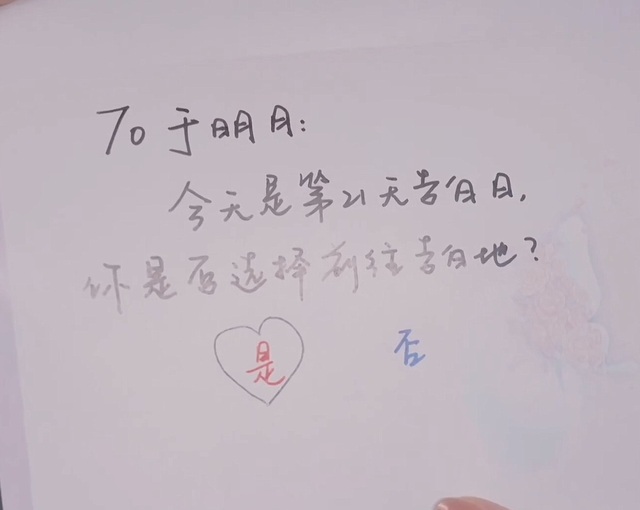 To于明月:
今天是第21天告白日,
你是否选择前往告白地?
是 否